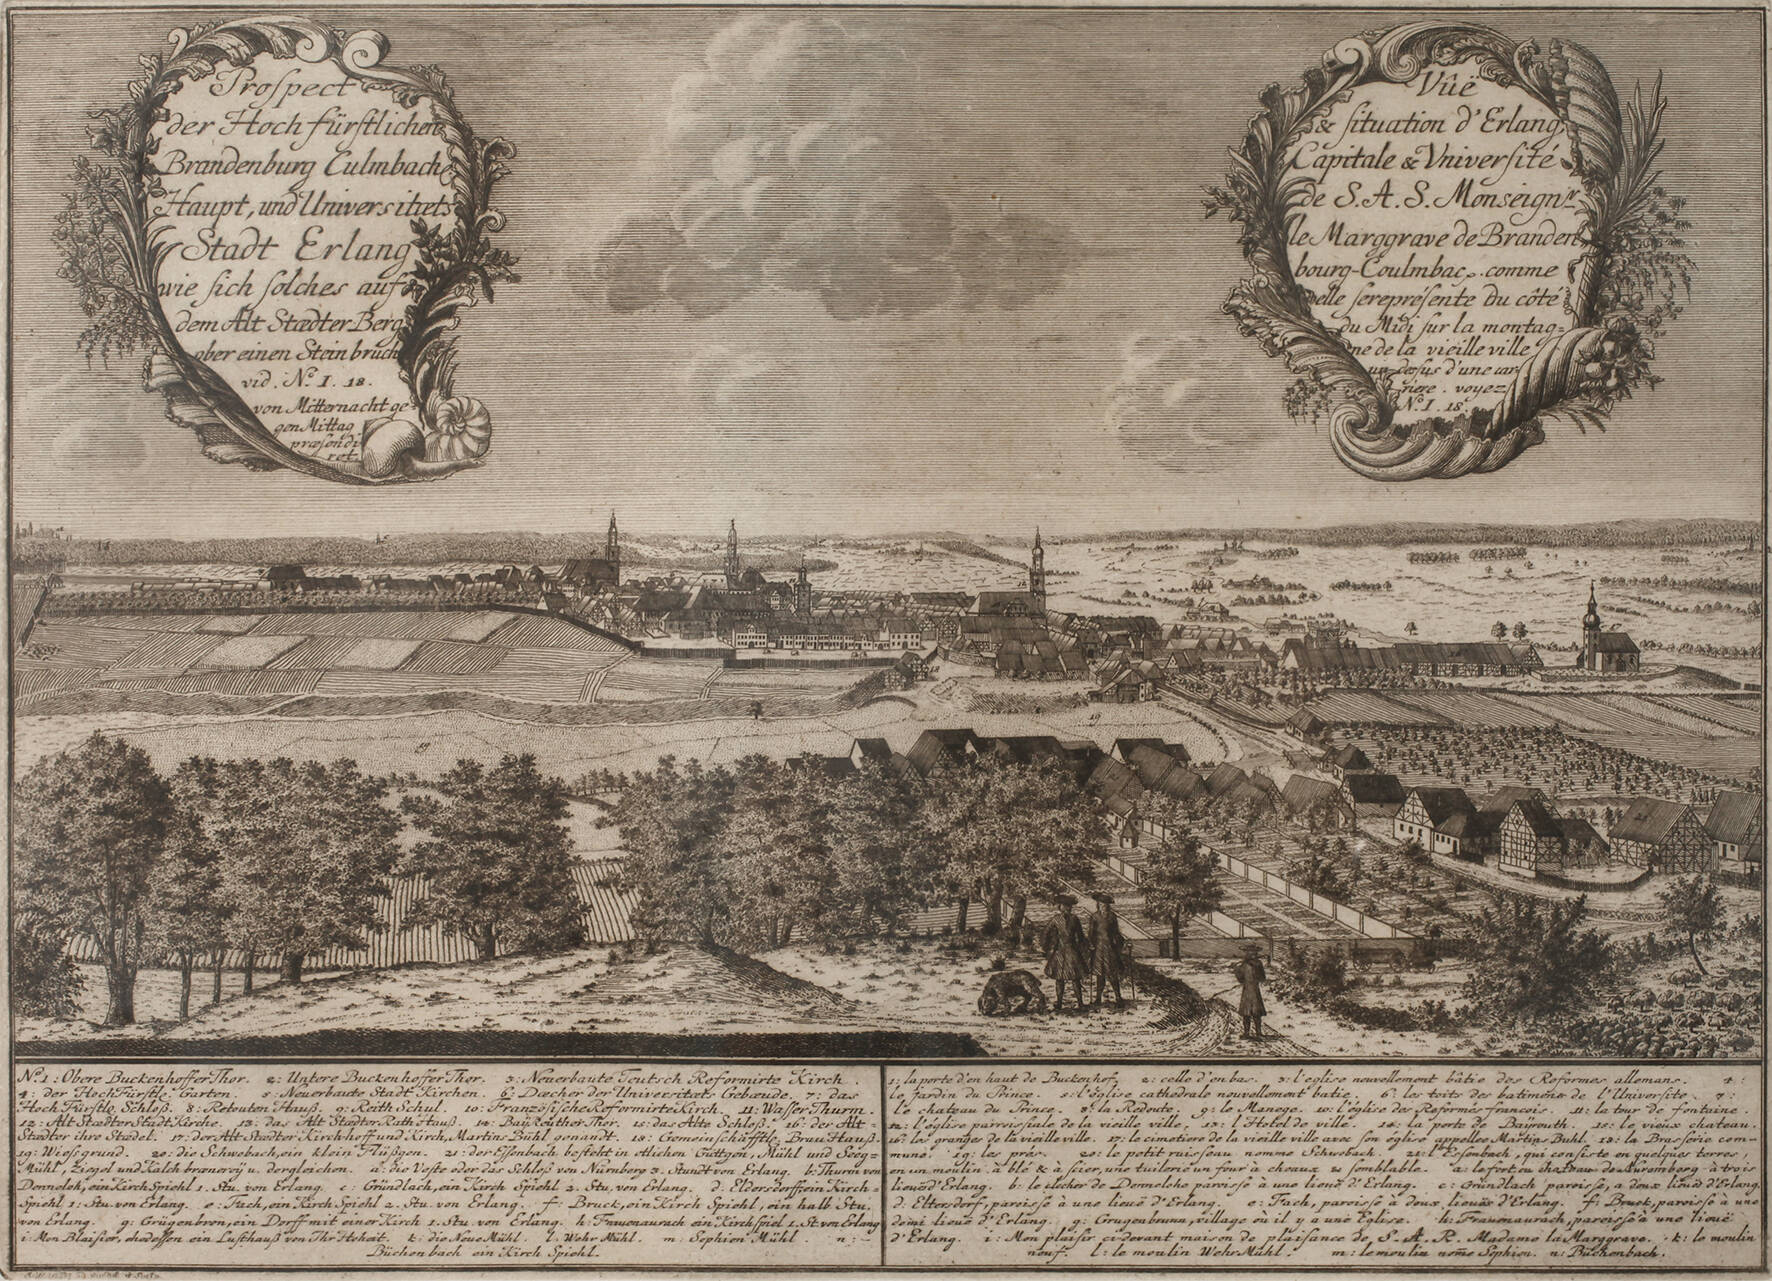 Prospect
der Hoch fürstlichen
Brandenburg Culmbach
Haupt, und Universitæts
Stadt Erlang
wie sich solches auf
dem Alt Stædter Berg
ober einen Steinbruch
vid. No. I. 18.
von Mitternacht ge-
gen Mittag
præsendi
ret.
Vûë
& situation d'Erlang,
Capitale & Vniversité
de S.A.S. Monseignr.
le Marggrave de Branden
bourg-Coulmbac, comme
elle sereprésente du côté
du Midi sur la montag=
ne de la vieille ville
au desus d'une car
riere. voyez
No. I. 18.
No. 1: Obere Buckenhoffer Thor. 2: Untere Buckenhoffer Thor. 3: Neuerbaute Teutsch Reformirte Kirch.
4: der Hoch Fürstle. Garten. 5: Neuerbaute Stadt Kirchen. 6: Dæcher der Universitæts Gebæude. 7: das
Hoch Fürstle. Schloß. 8: Retouten Hauß. 9: Reith Schul. 10: Französische Reformirte Kirch. 11: Wasser Thurm.
12: Alt Stædter Stadt Kirche. 13: das Alt Stædter Rath Hauß. 14: Bayreuther Thor. 15: das Alte Schloß. 16: der Alt=
Stædter ihre Stædel. 17: der Alt Stædter Kirchhoff und Kirch, Martins Bühl genandt. 18: Gemeinschäfftle. Brau Hauß.
19: Wiesgrund. 20: die Schwobach, ein klein Flüßgen. 21: der Essenbach besteht in etlichen Güttgen, Mühl und Seeg=
Mühl, Ziegel und Kalch brænereÿ u. dergleichen. a: die Veste oder das Schloß von Nürnberg 3. Stundt von Erlang. b: Thurm von
Donneloh, ein Kirch Spiehl 1. Stu. von Erlang. c: Gründlach, ein Kirch Spiehl 2. Stu. von Erlang. d: Eltersdorff ein Kirch=
Spiehl 1: Stu. von Erlang. e: Fach, ein Kirch Spiehl 2. Stu. von Erlang. f: Bruck, ein Kirch Spiehl, ein halb Stu.
von Erlang. g: Grügenbron, ein Dorff mit einer Kirch 1. Stu. von Erlang. h: Frauenaurach ein Kirchspiel 1. St. von Erlang
i: Mon Blaisier, ehedessen ein Lusthauß von Ihr Hoheit. k: die Neue Mühl. l: Wehr Mühl. m: Sophien Mühl. n:
Büchenbach ein Kirch Spiehl.
1: la porte d'en haut de Buckenhof, 2: celle d'en bas. 3: l'eglise nouvellement bâtie des Reformes allemans. 4:
le jardin du Prince. 5: l'église cathedrale nouvellement batie. 6: les toits des batimens de l'Université. 7:
le chateau du Prince. 8: la Redoute. 9: le Manege. 10: l'église des Reformés francois. 11: la tour de fontaine.
12: l'église parroissiale de la vieille ville. 13: l'Hotel de ville. 14: la porte de Baireuth. 15: le vieux chateau.
16: les granges de la vieille ville. 17: le cimetiere de la vieille ville avec son église appellee Martins Buhl. 18: la Brasserie com-
mune. 19: les prés. 20: le petit ruisseau nomme Schwobach. 21: l'Essenbach, qui consiste en quelques terres,
en un moulin à blé & à scier, une tuilerie un four à cheaux & semblable. a: le fort ou chateau de Nuremberg à trois
lieües d'Erlang. b: le clocher de Donnelohe paroisse à une lieuë d'Erlang. c: Gründlach paroisse, a deux lieües d'Erlang.
d: Eltersdorf, paroisse à une lieuë d'Erlang. e: Fach, paroisse à deux lieuës d'Erlang. f: Bruck, paroisse à une
demi lieuë d'Erlang. g: Grugenbrunn, village ou il y a une Eglise. h: Frauenaurach, paroisse à une lieuë
d'Erlang. i: Mon plaisir ci devant maison de plaisance de S. A. R. Madame la Marggrave. k: le moulin
neuf. l: le moulin Wehr Mühl. m: le moulin nomé Sophien. n: Büchenbach.